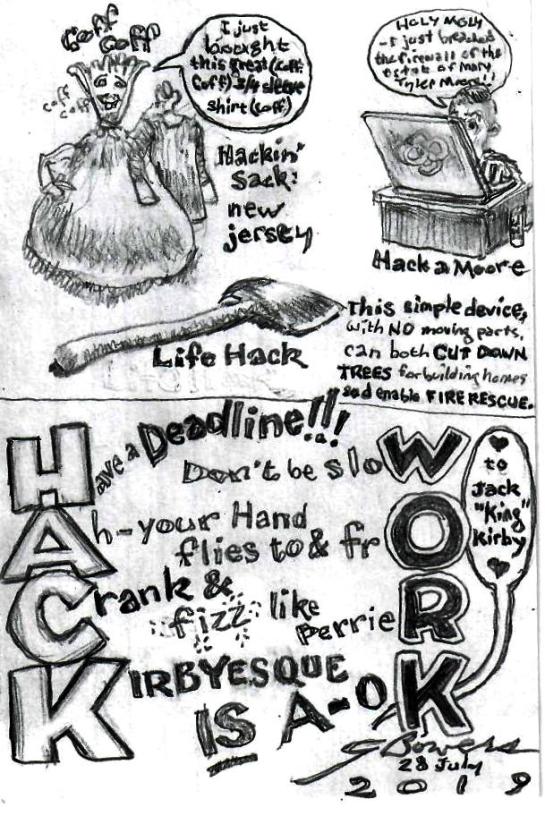 Coff
coff
coff
coff
I just
bought
this great (coff
coff) 3/4 sleeve
shirt (coff)
Hackin'
Sack:
new
jersey
HOLY MOLY
-I just breached
the firewall of the
estat of Mary
Tyler Moore!!
Hack a Moore
Life Hack
This simple device,
with NO moving parts,
can both CUT DOWN
TREES for building homes
and enable FIRE RESCUE.
Have a Deadline!!!
Don't be sloW
Ah-your Hand
flies to & frO
Crank &
fizz like
PerrieR
KIRBYESQUE
IS A-OK
to
Jack
"King"
Kirby
C Bowers
28 July
2019